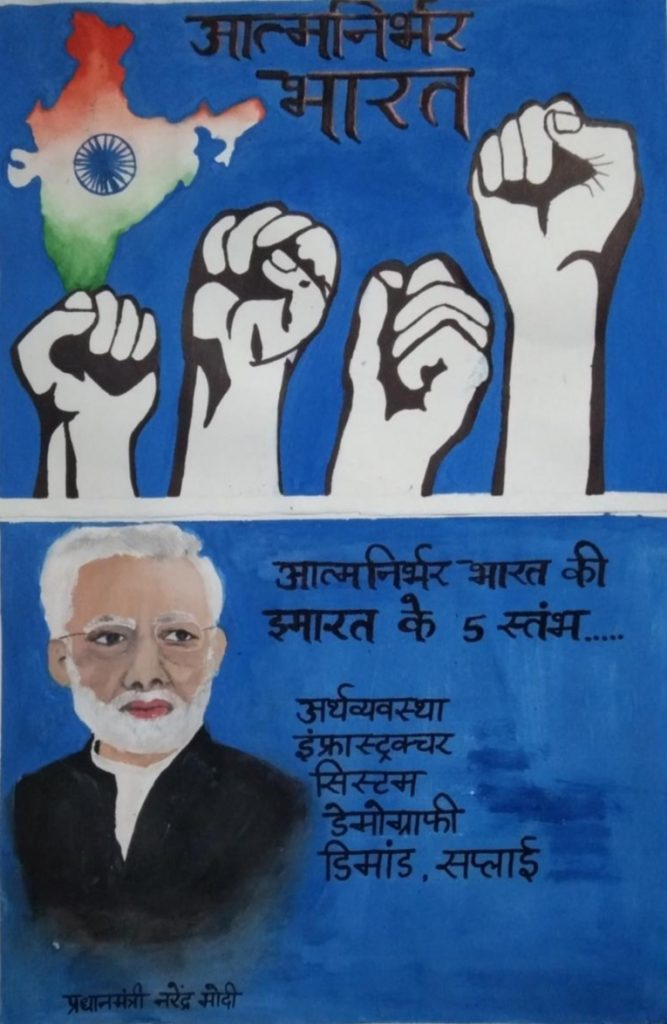 आत्मनिर्भर
भारत
आत्मनिर्भर भारत की
इमारत के 5 स्तंभ.....
अर्थव्यवस्था
इंफ्रास्ट्रक्चर
सिस्टम
डेमोग्राफी
डिमांड, सप्लाई
प्रधानमंत्री नरेंद्र मोदी